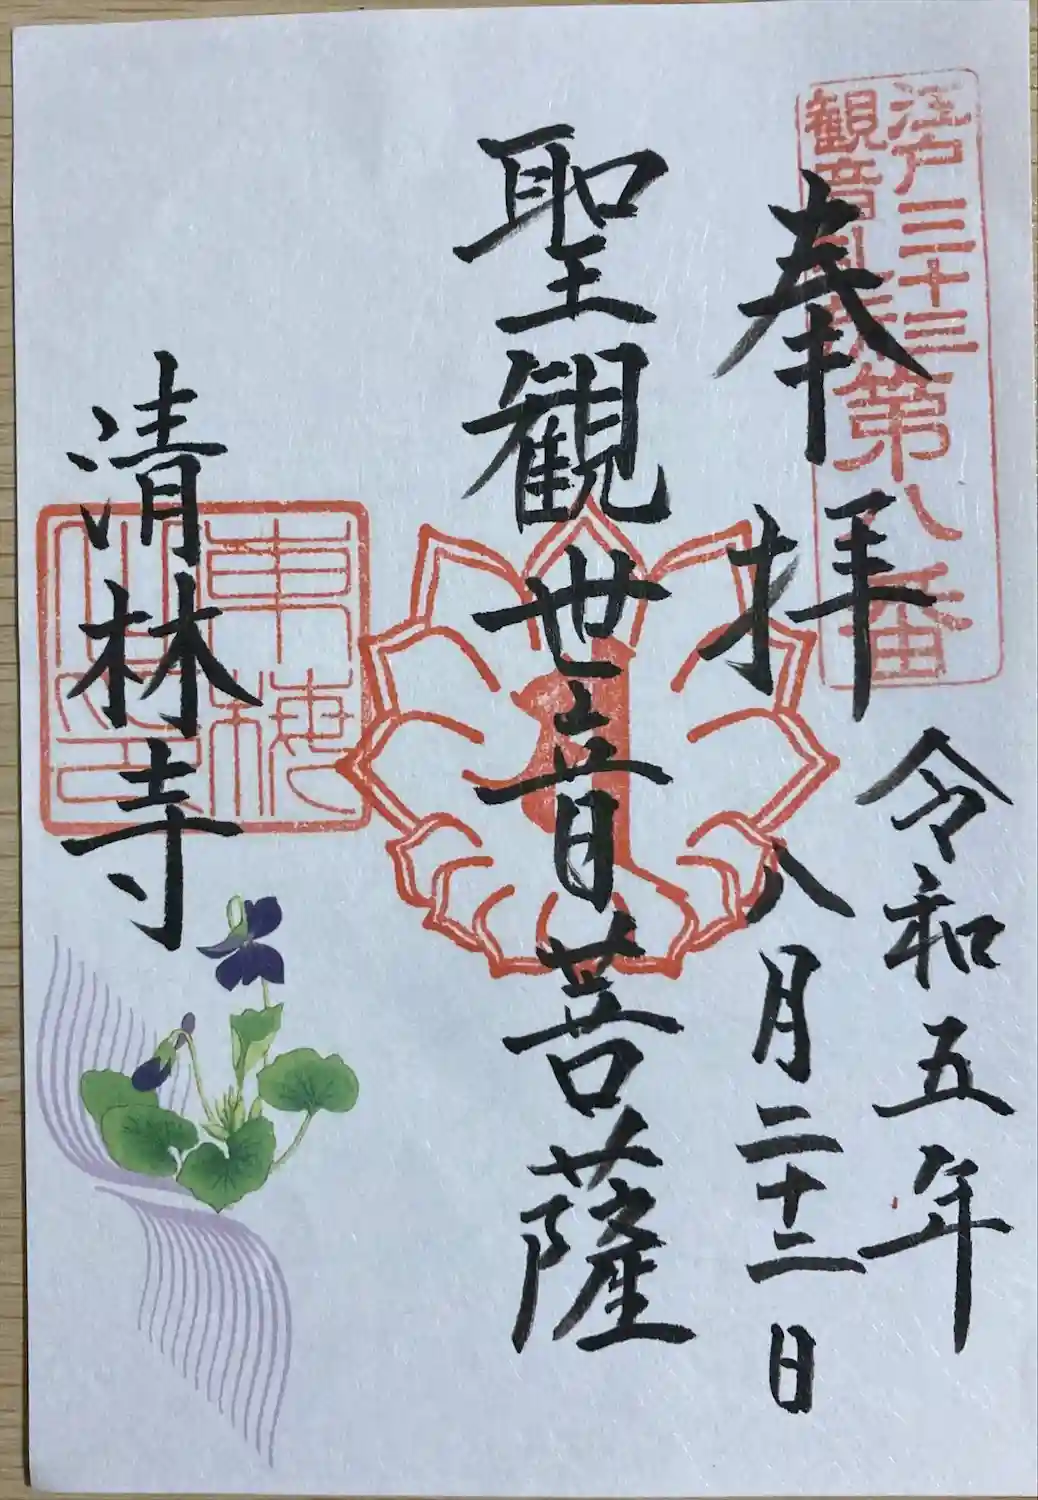 江戸三十三
観音札所第八番
奉拝
令和五年
八月二十二日
聖観世音菩薩
清林寺
東梅